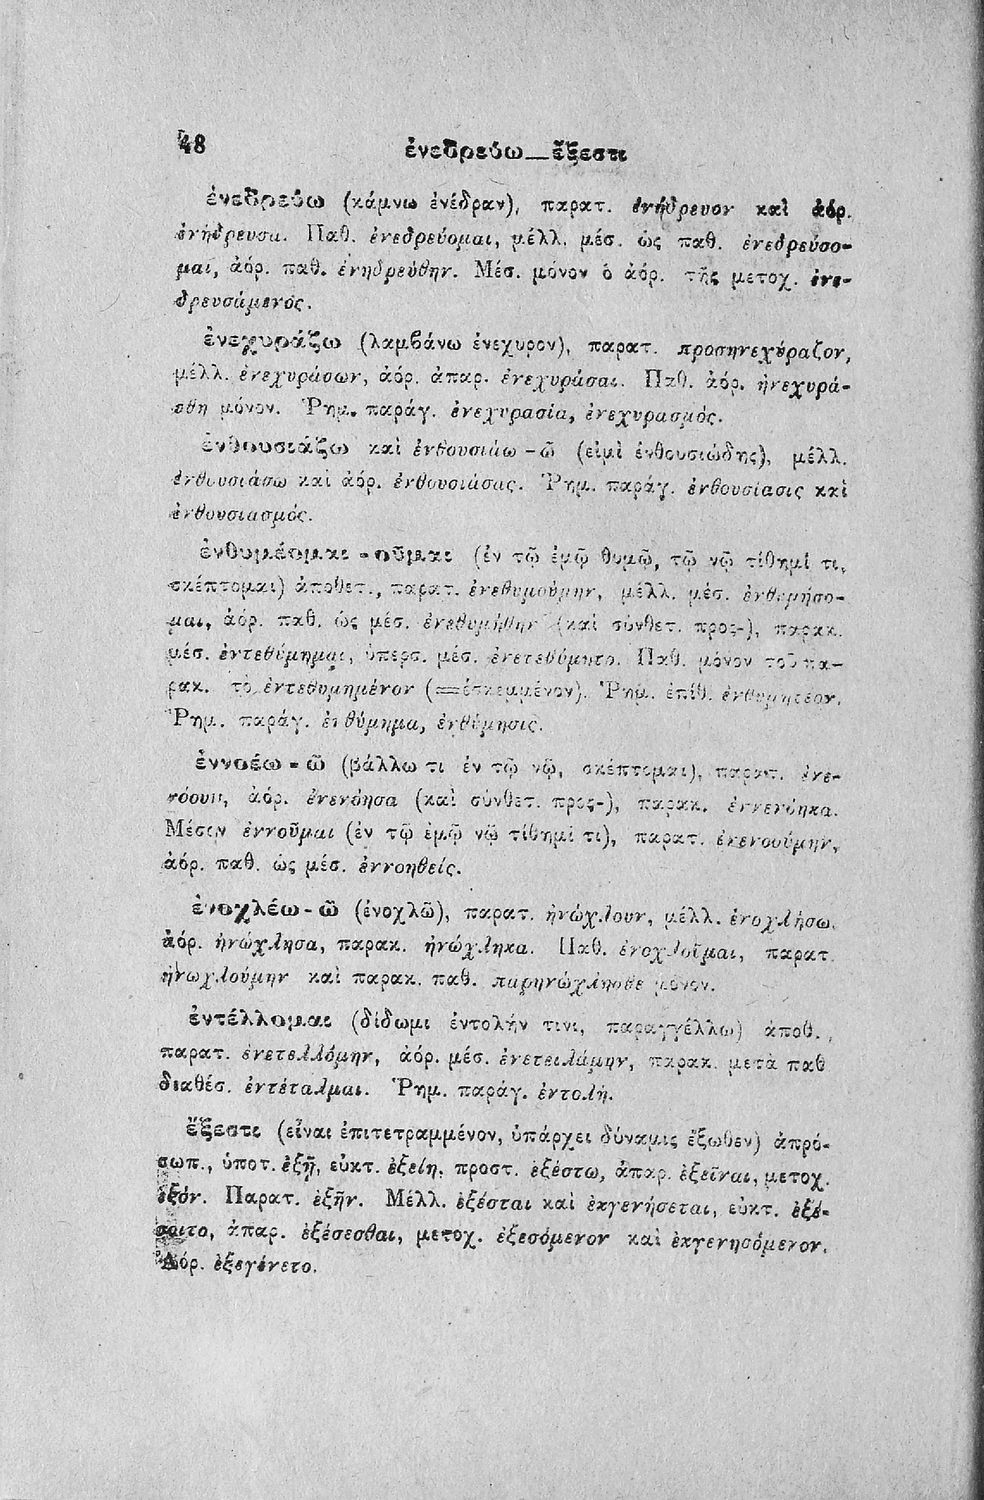 48
ἐνεδρεύω—ἔξεστι
ἐνεδρεύω (κάμνω ἐνέδραν), παρατ. ἐνήδρευον καὶ ἀόρ.
ἐνήδρευσα. Παθ. ἐνεδρεύομαι, μέλλ. μέσ. ὡς παθ. ἐνεδρεύσο-
μαι, ἀόρ. παθ. ἐνηδρεύθην. Μέσ. μόνον ὁ ἀόρ. τῆς μετοχ. ἐνε-
δρευσάμενος.
ἐνεχυράζω (λαμβάνω ἐνεχυρον), παρατ. προσηνεχύραζον,
μέλλ. ἐνεχυράσων, ἀόρ. ἀπαρ. ἐνεχυράσαι. Παθ. ἀόρ. ἠνεχυρά-
σθη μόνον. Ῥημ. παράγ. ἐνεχυρασία, ἐνεχυρασμός.
ἐνθουσιάζω καὶ ἐνθουσιάω -ῶ (εἰμὶ ἐνθουσιώδης), μέλλ.
ἐνθουσιάσω καὶ ἀόρ. ἐνθουσιάσας. Ῥημ. παράγ. ἐνθουσίασις καὶ
ἐνθουσιασμός.
ἐνθυμέομαι -οῦμαι (ἐν τῷ ἐμῷ θυμῷ, τῷ νῷ τίθημί τι,
σκέπτομαι) ἀποθετ., παρατ. ἐνεθυμούμην, μέλλ. μέσ. ἐνθυμήσο-
μαι, ἀόρ. παθ. ὡς μέσ. ἐνεθυμήθην (καὶ σύνθετ. προς-), παρακ.
μέσ. ἐντεθύμημαι, ὑπερσ. μέσ. ἐνετεθύμητο. Παθ. μόνον τοῦ πα-
ρακ. τὸ ἐντεθυμημένον (=ἐσκεμμένον). Ῥημ. ἐπίθ. ἐνθυμητέον.
Ῥημ. παράγ. ἐνθύμημα, ἐνθύμησις.
ἐννοέω -ῶ (βάλλω τι ἐν τῷ νῷ, σκέπτομαι), παρατ. ἐνε-
νόουν, ἀόρ. ἐνενόησα (καὶ σύνθετ. προς-), παρακ. ἐννενόηκα.
Μέσον ἐννοῦμαι (ἐν τῷ ἐμῷ νῷ τίθημί τι), παρατ. ἐνενοούμην,
ἀόρ. παθ. ὡς μέσ. ἐννοηθείς.
ἐνοχλέω-ῶ (ἐνοχλῶ), παρατ. ἠνώχλουν, μέλλ. ἐνοχλήσω,
ἀόρ. ἠνώχλησα, παρακ. ἠνώχληκα. Παθ. ἐνοχλοῦμαι, παρατ.
ἠνωχλούμην καὶ παρακ. παθ. παρηνώχλησθε μόνον.
ἐντέλλομαι (δίδωμι ἐντολήν τινι, παραγγέλλω) ἀποθ.,
παρατ. ἐνετελλόμην, ἀόρ. μέσ. ἐνετειλάμην, παρακ. μετὰ παθ
διαθέσ. ἐντέταλμαι. Ῥημ. παράγ. ἐντολή.
ἔξεστι (εἶναι ἐπιτετραμμένον, ὑπάρχει δύναμις ἔξωθεν) ἀπρό-
σωπ., ὑποτ. ἐξῇ, εὐκτ. ἐξείη, προστ. ἐξέστω, ἀπαρ. ἐξεῖναι, μετοχ.
ἐξόν. Παρατ. ἐξῆν. Μέλλ. ἐξέσται καὶ ἐκγενήσεται, εὐκτ. ἐξέ-
σοιτο, ἀπαρ. ἐξέσεσθαι, μετοχ. ἐξεσόμενον καὶ ἐκγενησόμενον.
Ἀόρ. ἐξεγένετο.